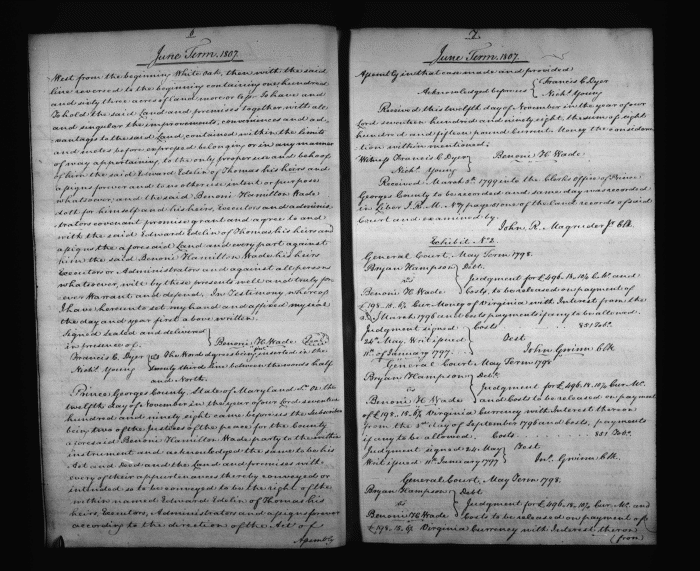 6
June Term. 1807.
West from the beginning White Oak, then with the said
line reversed to the beginning containing one hundred
and sixty three acres of land, more or less. To have and
To hold the said Land and premises together with all
and singular the improvements, conveniences and ad-
vantages to the said Land, contained within the limits
and metes before expressed belonging or in any manner
of way appertaining, to the only proper use and behoof
of him the said Edward Edelin of Thomas his heirs and
assigns forever and to no other use intent or purpose
whatsoever, and the said Benoni Hamilton Wade
doth for himself and his heirs, executors and adminis
trators covenant promise grant and agree to and
with the said Edward Edelin of Thomas his heirs and
assigns the aforesaid Land and every part against
him the said Benoni Hamilton Wade his heirs
Executors or Administrators and against all persons
whatsoever, will by these presents well and truly for-
ever Warrant and defend. In Testimony whereof
I have hereunto set my hand and affixed my seal
the day and year first above written.
Signed sealed and delivered
in presence of. Benoni H. Wade Seal
Francis C. Dyer The Word agreeing inserted in the
Nichs. Young twenty third line between the words half
and North.
Prince Georges County, State of Maryland Sc. On the
twelfth day of November in the year of our lord seventeen
hundred and ninety eight came before us the Subscribers
being two of the Justices of the peace for the County
aforesaid Benoni Hamilton Wade party to the within
instrument and acknowledged the same to be his
Act and Deed and the Land and premises with
every of their appurtenances thereby conveyed or
intended so to be conveyed to be the right of the
within named Edward Edelin of Thomas his
heirs, Executors, Administrators and assigns forever
according to the direction of the Act of
Assembly
7.
June Term. 1807.
Assembly in that case made and provided
Acknowledged before us Francis C. Dyer
Nichs. Young
Received this twelfth day of November in the year of our
Lord seventeen hundred and ninety eight, the sum of eight
hundred and fifteen pound Current Money the considera
tion within mentioned.
Witness Francis C. Dyer Benoni H. Wade
Nichs. Young
Received March 5th. 1799 into the Clerks office of Prince
Georges County to be recorded and same day was recorded
in Liber J. R. M. No. 7 page one of the land records of said
Court and examined by.
John R. Magruder Jr. Clk.
Exhibit No. 2.
General Court, May Term 1798.
Bryan Hampson Debt.
vs Judgment for £496.18.10½ C. My. and
Benoni H. Wade Costs, to be released on payment of
£198.15.6½ Cur. Money of Virginia with Interest from the
March 1796 and costs payments if any to be allowed.
Judgment signed Costs 851 Tobo.
24th. May. Writ issued Test
11th. of January 1797. John Gwinn Clk
General Court, May Term 1798
Bryan Hampson Debt.
vs Judgment for £496.18.10½ Cur. My.
Benoni H. Wade and Costs to be released on payment
of £198.15.6½ Virginia Currency with Interest thereon
from the 2d. day of September 1796 and Costs, payments
if any to be allowed, Costs 851 Tobo.
Judgment signed 24 May Test
Writ issued 11th. January 1797 Jno. Gwinn Clk.
General Court, May Term 1798.
Bryan Hampson Debt
vs Judgment for £496.18.10½ Cur. My. and
Benoni H. Wade Costs to be released on payment of
£198.15.6½ Virginia Currency with Interest thereon
(from)